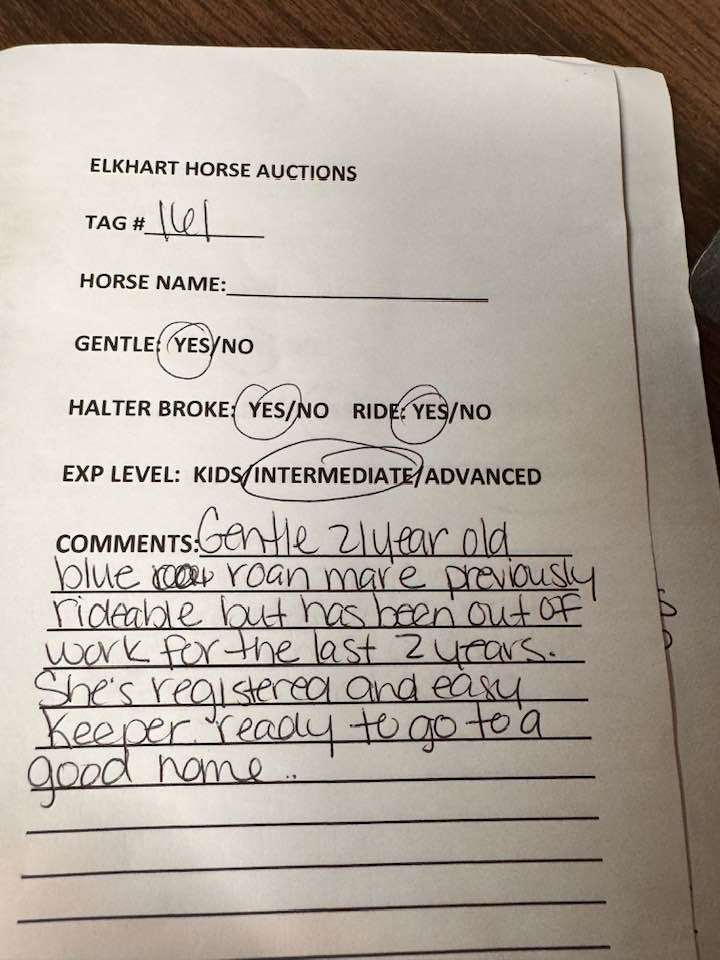 ELKHART HORSE AUCTIONS
TAG # 161
HORSE NAME:
GENTLE: YES/NO
HALTER BROKE: YES/NO RIDE: YES/NO
EXP LEVEL: KIDS/INTERMEDIATE/ADVANCED
COMMENTS: Gentle 21 year old
blue roan mare previously
rideable but has been out of
work for the last 2 years.
She's registered and easy
keeper ready to go to a
good home..